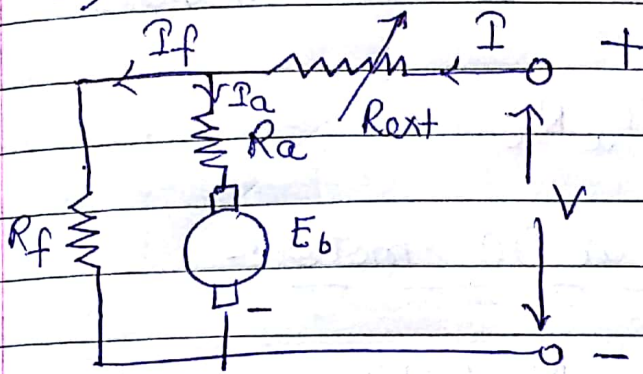 If
I
+
Ia
Rext
Ra
V
Rf
Eb
-
-